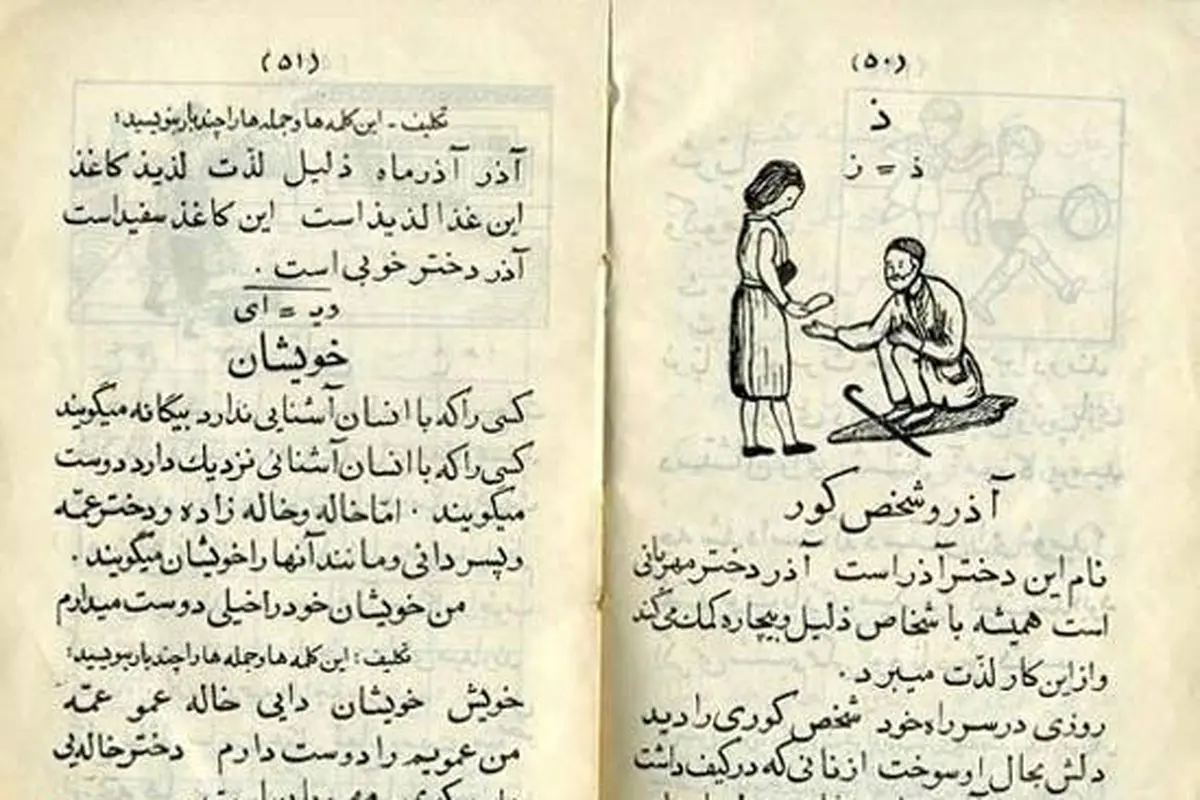 (۵۰)
ذ
ذ = ز
آذر و شخص کور
نام این دختر آذر است آذر دختر مهربانی
است همیشه با شخاص ذلیل و بیچاره کمک می‌کند
و از این کار لذّت میبرد.
روزی در سر راه خود شخص کوری را دید
دلش بحال او سوخت از نانی که در کیف داشت
(۵۱)
تکلیف ـ این کلمه ها و جمله ها را چند بار بنویسید:
آذر آذرماه ذلیل لذّت لذیذ کاغذ
این غذا لذیذ است این کاغذ سفید است
آذر دختر خوبی است.
ویـ = ای
خویشان
کسی را که با انسان آشنایی ندارد بیگانه میگویند
کسی را که با انسان آشنائی نزدیك دارد دوست
میگویند. امّا خاله و خاله زاده و دختر عمّه
و پسر دائی و مانند آنها را خویشان میگویند.
من خویشان خود را خیلی دوست میدارم
تکلیف: این کلمه ها و جمله ها را چند بار بنویسید:
خویش خویشان دایی خاله عمو عمّه
من عمویم را دوست دارم دختر خاله‌یی